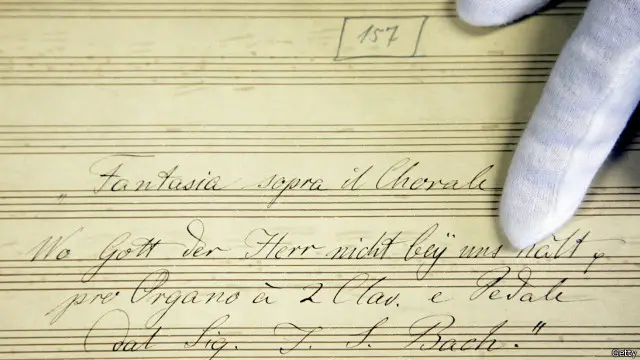 157
„ Fantasia sopra il Chorale
Wo Gott der Herr nicht beÿ uns hält,
pro Organo à 2 Clav. e Pedale
dal Sig. J. S. Bach."
Getty